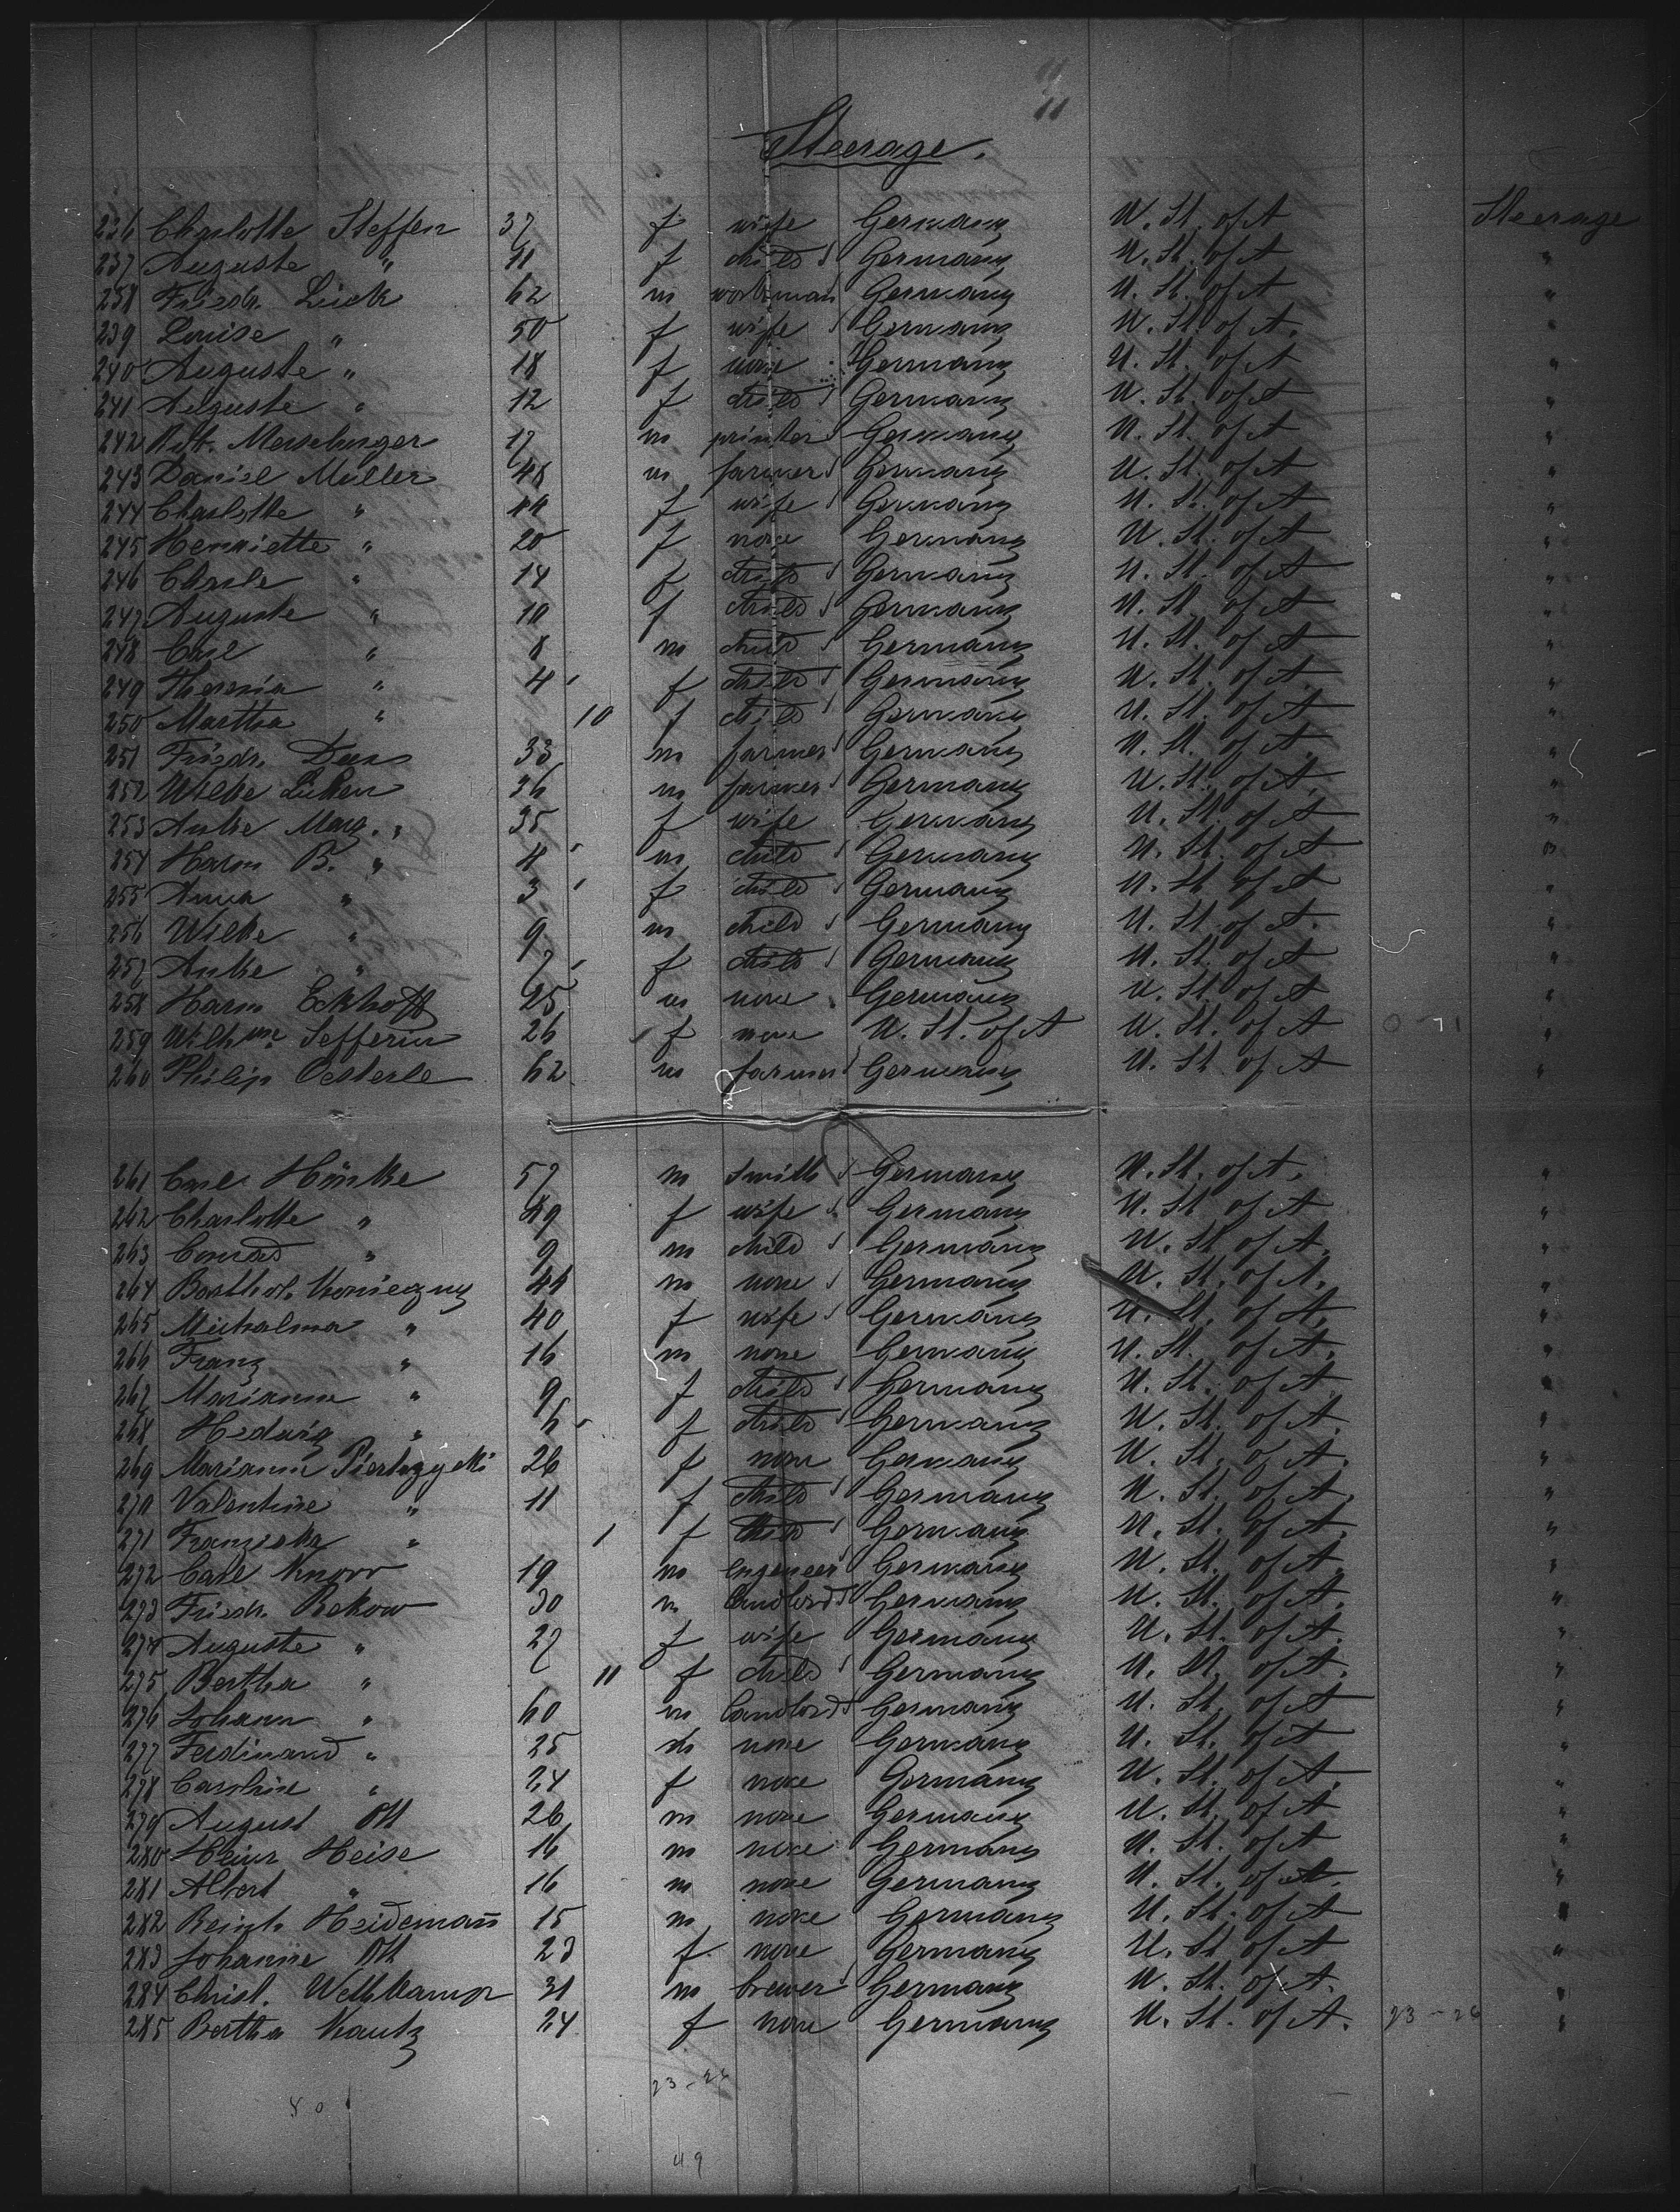 11
Steerage.
236 Charlotte Steffen 37 f wife Germany U. St. of A Steerage
237 Auguste " 11 f child Germany U. St. of A "
238 Friedr. Lück 62 m workman Germany U. St. of A "
239 Louise " 50 f wife Germany U. St. of A. "
240 Auguste " 18 f none Germany U. St. of A "
241 Auguste " 12 f child Germany U. St. of A "
242 Rob. Merseburger 17 m printer Germany U. St. of A "
243 Daniel Müller 48 m farmer Germany U. St. of A "
244 Charlotte " 44 f wife Germany U. St. of A "
245 Henriette " 20 f none Germany U. St. of A "
246 " 14 f child Germany U. St. of A "
247 Auguste " 10 f child Germany U. St. of A "
248 Carl " 8 m child Germany U. St. of A "
249 Theresia " 4 f child Germany U. St. of A "
250 Martha " 10 f child Germany U. St. of A "
251 Friedr. 33 m farmer Germany U. St. of A. "
252 Wilke Lüken 36 m farmer Germany U. St. of A. "
253 Antke Marg. " 35 f wife Germany U. St. of A "
254 Harm B. " 4 m child Germany U. St. of A "
255 Anna " 3 f child Germany U. St. of A "
256 Wilke " 9 m child Germany U. St. of A. "
257 Antke " 7 f child Germany U. St. of A "
258 Harm Eckhoff 25 m none Germany U. St. of A "
259 Wilhme Sefferin 26 f none U. St. of A U. St. of A 0 - 1 "
260 Philip Oesterle 62 m farmer Germany U. St. of A "
261 Carl Hönke 57 m smith Germany U. St. of A. "
262 Charlotte " 49 f wife Germany U. St. of A "
263 Conrad " 9 m child Germany U. St. of A. "
264 Barthol. Konieczny 44 m none Germany U. St. of A. "
265 Michalina " 40 f wife Germany U. St. of A. "
266 Franz " 16 m none Germany U. St. of A. "
267 Marianne " 9 f child Germany U. St. of A "
268 Hedwig " 6 f child Germany U. St. of A. "
269 Marianne 26 f none Germany U. St. of A. "
270 Valentine " 11 f child Germany U. St. of A. "
271 Franziska " 1 f child Germany U. St. of A. "
272 Carl Knorr 19 m engeneer Germany U. St. of A. "
273 Friedr. Rekow 30 m landlord Germany U. St. of A. "
274 Auguste " 27 f wife Germany U. St. of A. "
275 Bertha " 11 f child Germany U. St. of A. "
276 Johann " 60 m landlord Germany U. St. of A "
277 Ferdinand " 25 m none Germany U. St. of A "
278 Caroline " 24 f none Germany U. St. of A. "
279 August Ott 26 m none Germany U. St. of A "
280 Heinr Heise 16 m none Germany U. St. of A "
281 Albert " 16 m none Germany U. St. of A. "
282 Reinh. Heidemann 15 m none Germany U. St. of A "
283 Johanne Ott 23 f none Germany U. St. of A "
284 Christ. Wettkamp 31 m brewer Germany U. St. of A. "
285 Bertha Kautz 24 f none Germany U. St. of A. 23 - 26 "
23 - 26
50
49